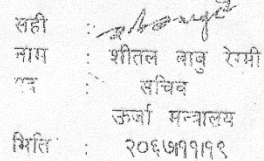 सही :
नाम : शीतल बाबु रेग्मी
पद : सचिव
ऊर्जा मन्त्रालय
मिति : २०६७।११।१९